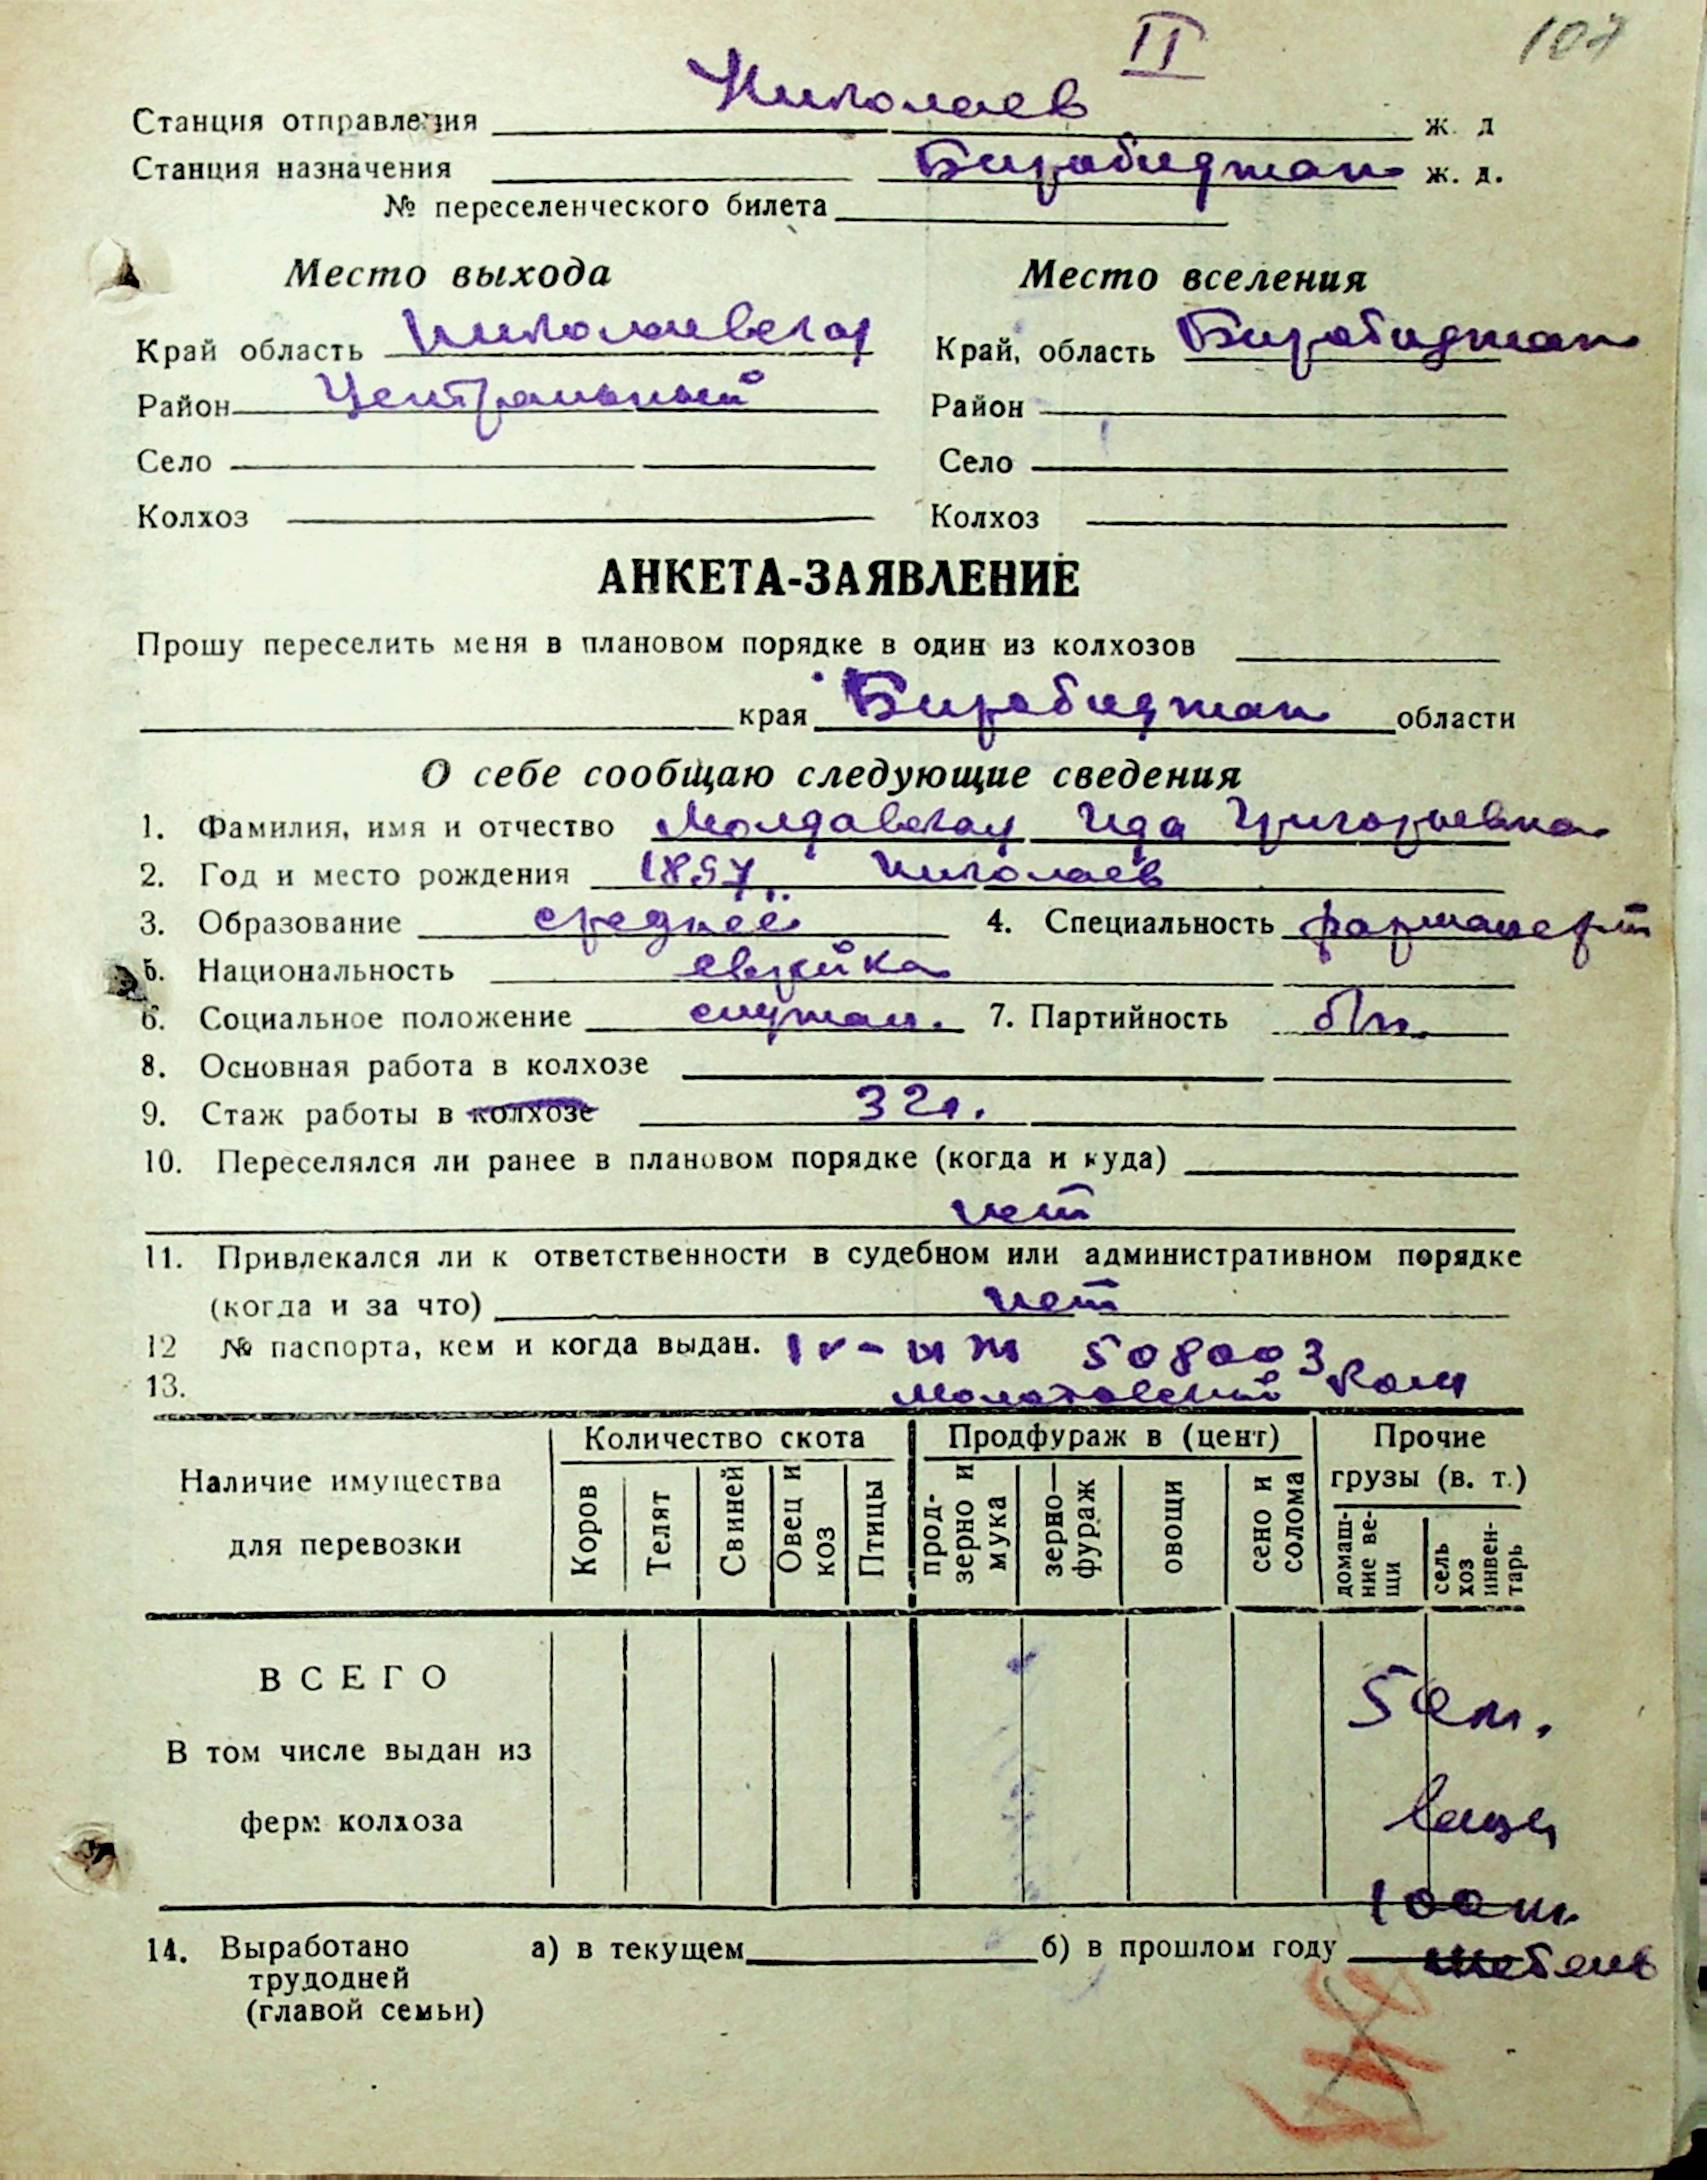 II
107
Николаев
Станция отправления ж. д
Станция назначения Биробиджан ж. д.
№ переселенческого билета
Место выхода Место вселения
Край область Николаевская Край, область Биробиджан
Район Центральный Район
Село Село
Колхоз Колхоз
АНКЕТА-ЗАЯВЛЕНИЕ
Прошу переселить меня в плановом порядке в один из колхозов
края Биробиджан области
О себе сообщаю следующие сведения
1. Фамилия, имя и отчество Молдавская Ида Григорьевна
2. Год и место рождения 1897 Николаев
3. Образование среднее 4. Специальность фармацефт
5. Национальность еврейка
6. Социальное положение служащ. 7. Партийность б/п.
8. Основная работа в колхозе
9. Стаж работы в колхозе 32 г.
10. Переселялся ли ранее в плановом порядке (когда и куда)
нет
11. Привлекался ли к ответственности в судебном или административном порядке
(когда и за что) нет
12 № паспорта, кем и когда выдан. 508003
13. Молотовский
Наличие имущества для перевозки
Количество скота Продфураж в (цент) Прочие грузы (в. т.)
Коров Телят Свиней Овец и коз Птицы прод-зерно и мука зерно—фураж овощи сено и солома домаш-ние ве-щи сель хоз инвен-тарь
ВСЕГО
В том числе выдан из
ферм колхоза
вещи
14. Выработано а) в текущем б) в прошлом году
трудодней
(главой семьи)